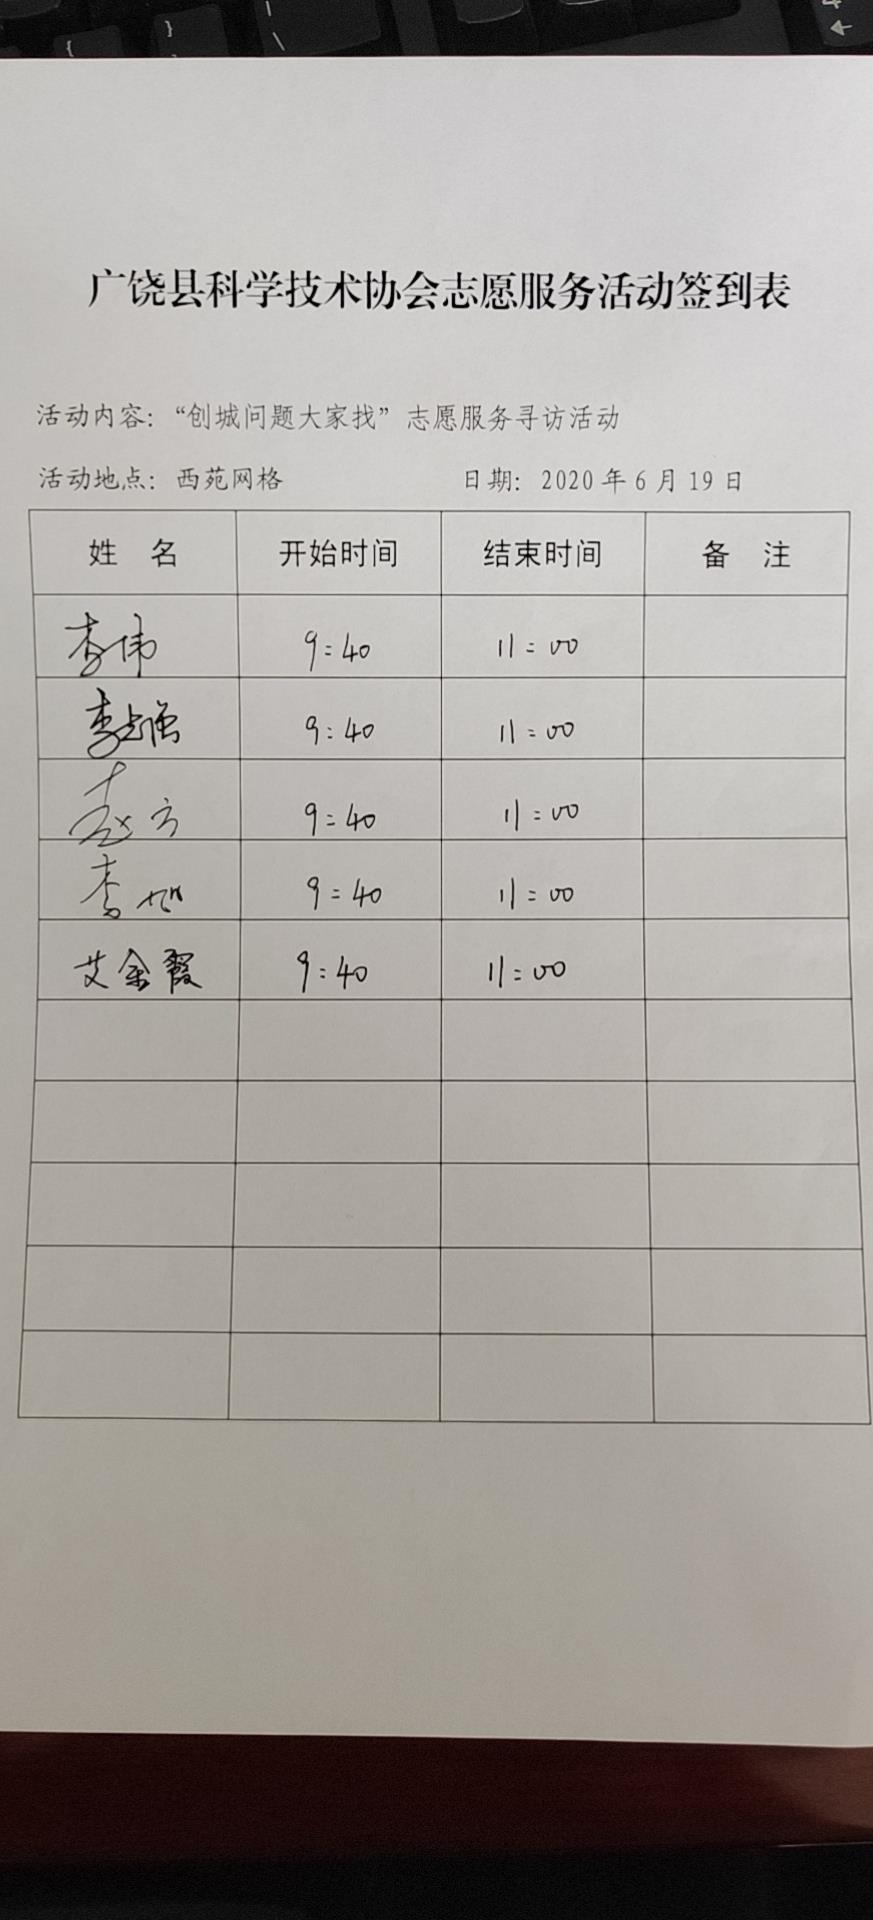 广饶县科学技术协会志愿服务活动签到表
活动内容：“创城问题大家找”志愿服务寻访活动
活动地点：西苑网格 日期：2020 年 6 月 19 日
姓 名 开始时间 结束时间 备 注
李伟 9:40 11:00
李志强 9:40 11:00
赵方 9:40 11:00
李旭 9:40 11:00
艾余霞 9:40 11:00